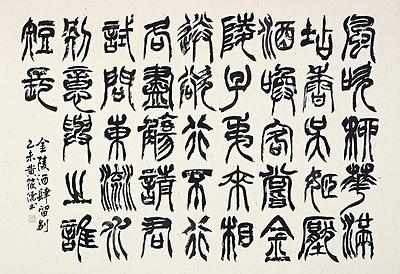 風吹柳花滿
店香吳姬壓
酒喚客嘗金
陵子弟來相
送欲行不行
各盡觴請君
試問東流水
別意與之誰
短長
金陵酒肆留別
未黃筱書